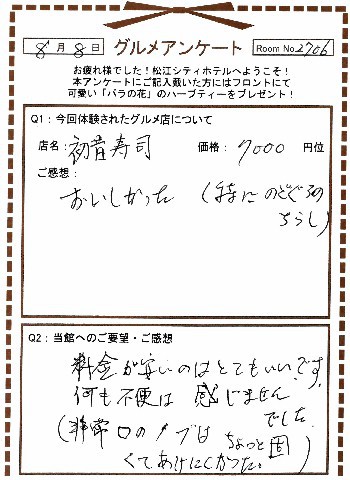 8月8日 グルメアンケート Room No.2706
お疲れ様でした！松江シティホテルへようこそ！
本アンケートにご記入戴いた方にはフロントにて
可愛い「バラの花」のハーブティーをプレゼント！
Q1：今回体験されたグルメ店について
店名： 初音寿司 価格： 7000 円位
ご感想：
おいしかった （特にのどぐろの
ちらし）
Q2：当館へのご要望・ご感想
料金が安いのはとてもいいです。
何も不便は感じません
でした
（非常口のノブは ちょっと固
くてあけにくかった。）